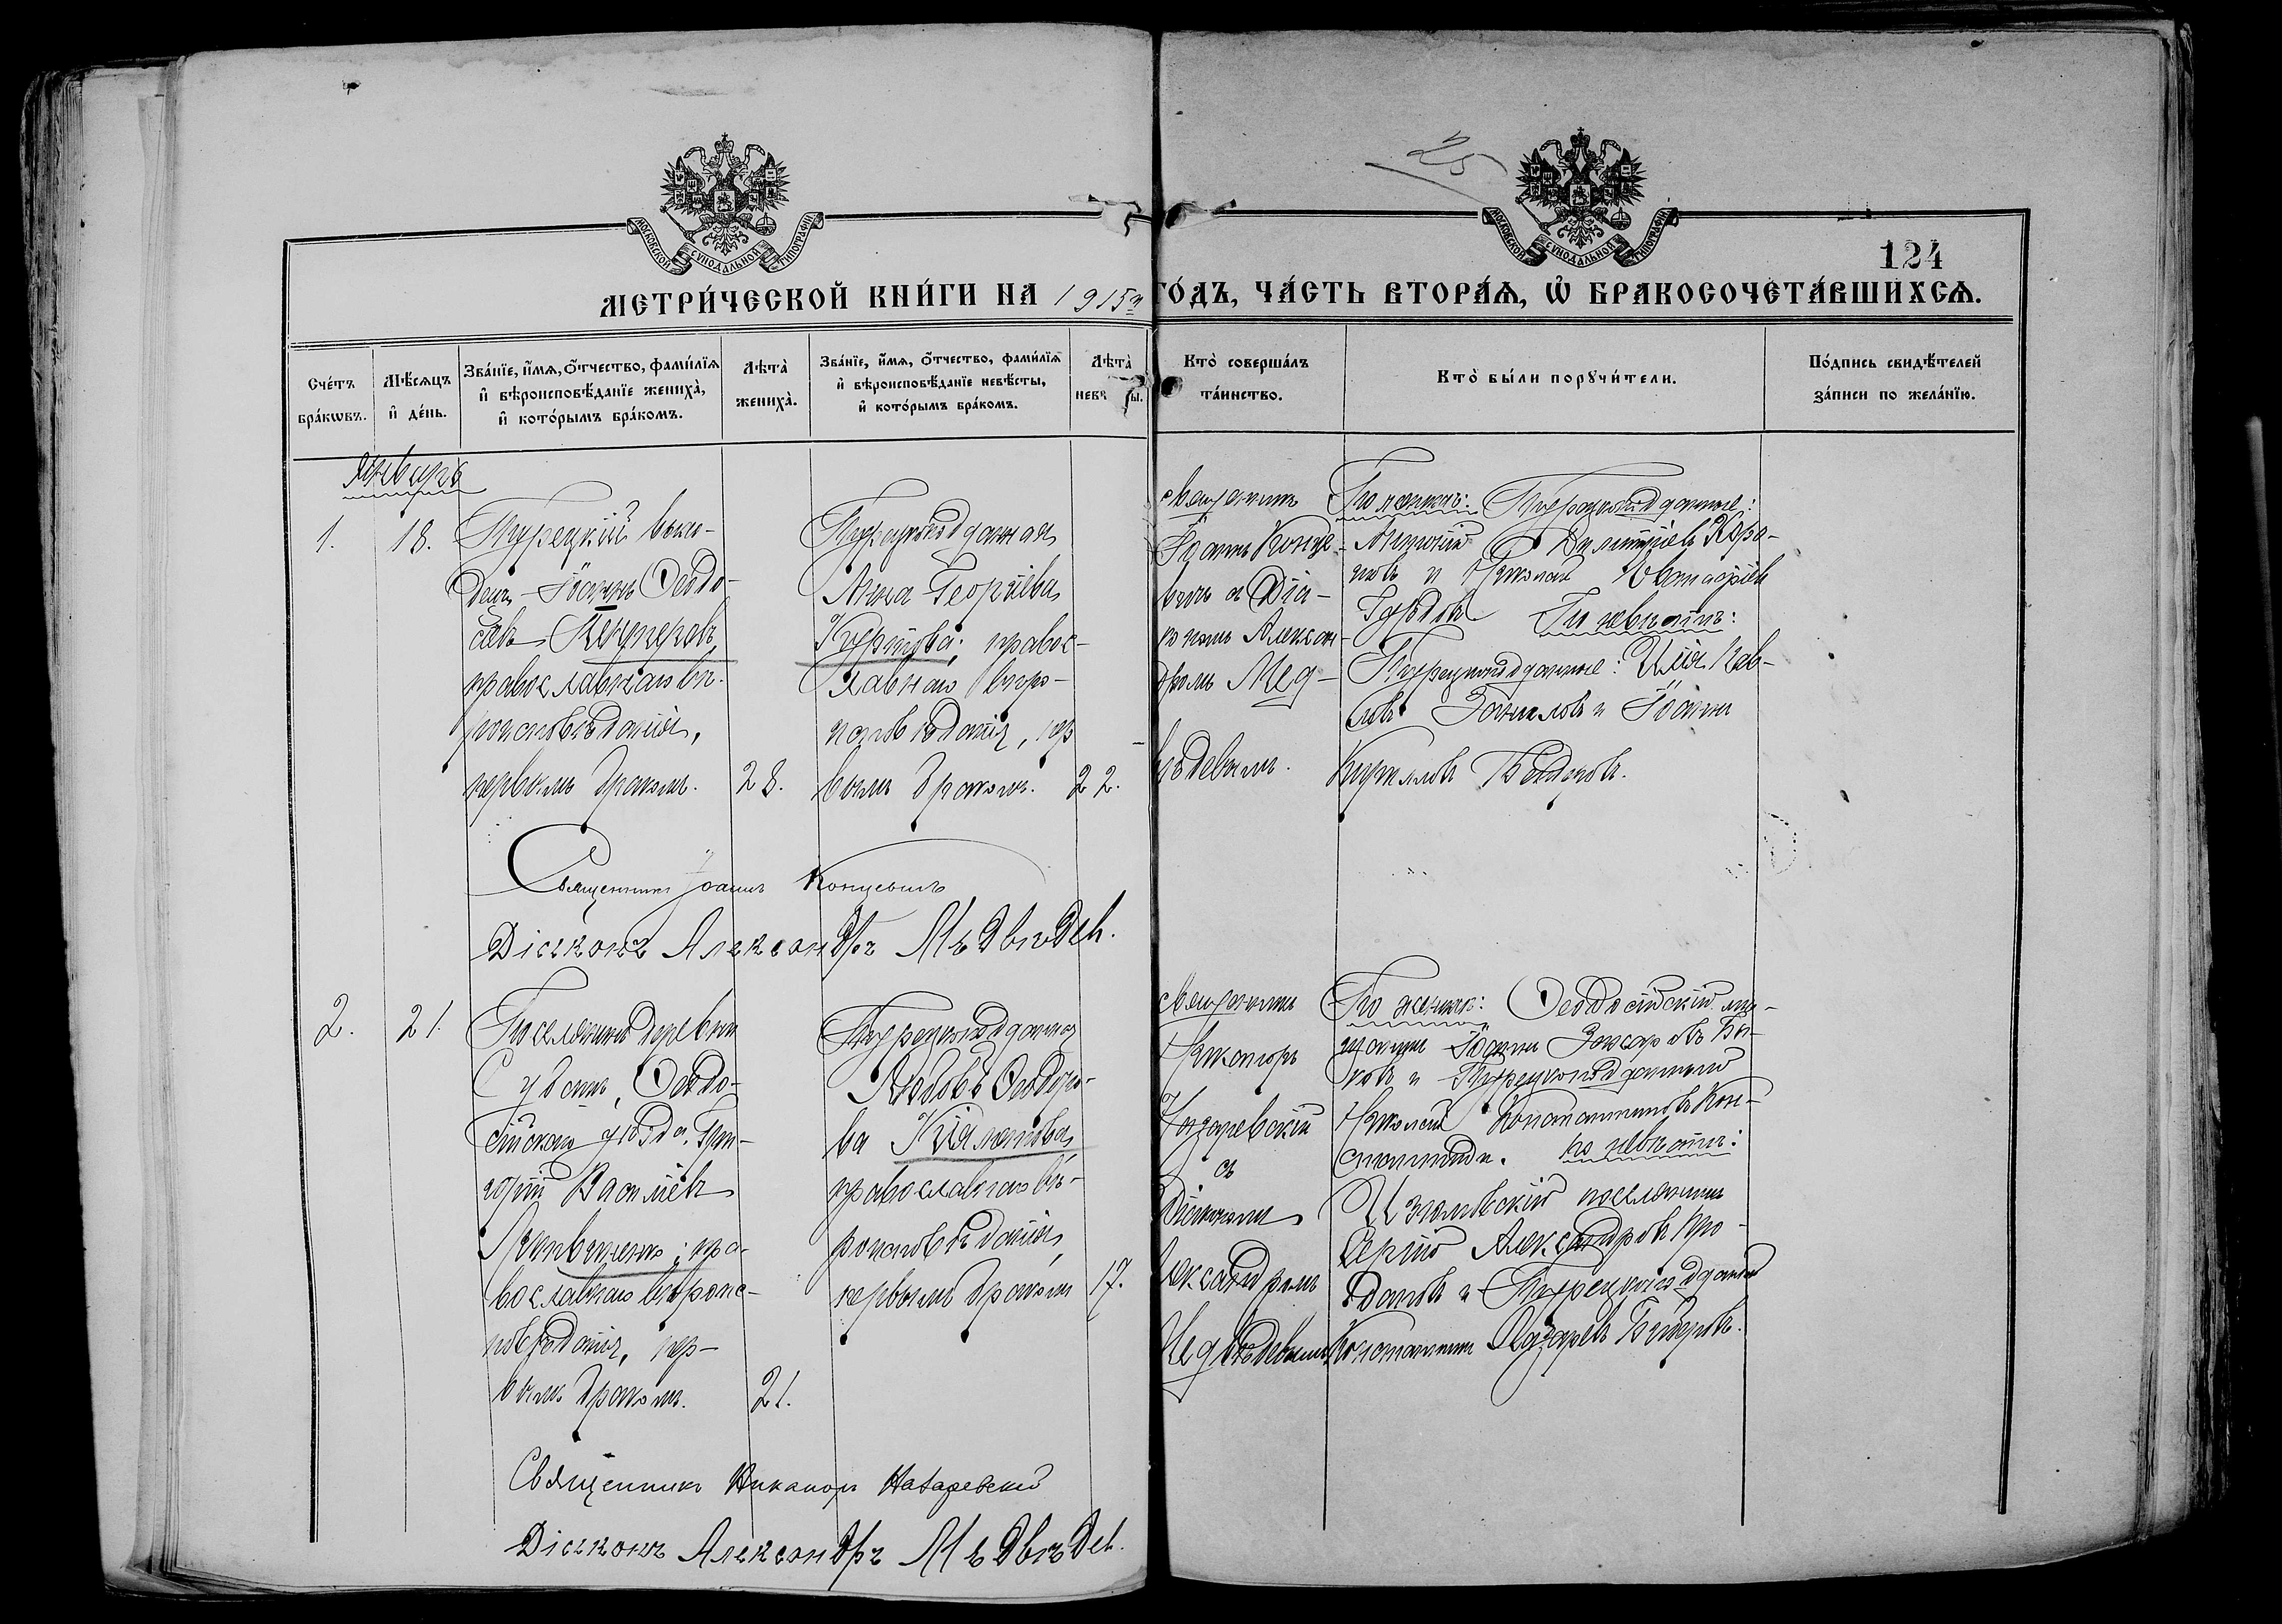 25
124
МОСКОВСКОЙ СѴНОДАЛЬНОЙ ТИПОГРАФІИ
МОСКОВСКОЙ СѴНОДАЛЬНОЙ ТИПОГРАФІИ
МЕТРИ́ЧЕСКОЙ КНИ́ГИ НА 1915й ГО́ДЪ, ЧА́СТЬ ВТОРА́Я, Ѡ҆ БРАКОСОЧЕТА́ВШИХСЯ.
Сче́тъ бра́кωвъ.
Мѣ́сяцъ и҆ де́нь.
Зва́нїе, и҆́мя, ѻ҆́тчество, фами́лїя и҆ вѣроисповѣ́данїе жениха̀, и҆ кото́рымъ бра́комъ.
Лѣта̀ жениха̀.
Зва́нїе, и҆́мя, ѻ҆́тчество, фами́лїя и҆ вѣроисповѣ́данїе невѣ́сты, и҆ кото́рымъ бра́комъ.
Лѣта̀ невѣ ты.
Кто̀ соверша́лъ та́инство.
Кто̀ бы́ли порꙋчи́тели.
По́дпись свидѣ́телей за́писи по жела́нїю.
Январь
1.
18.
Турецкій выхо-
децъ Іоаннъ Ѳеодо-
православнаго вѣ-
роисповѣданія,
первымъ бракомъ.
28.
Турецкоподданная
Анна Георгіева
Куртова; правос-
лавнаго вѣро-
исповѣданія, пер
вымъ бракомъ.
22.
священникъ
Іоаннъ Концe-
вичъ и Діа-
кономъ Алексан-
дромъ Мед-
вѣдевымъ.
По женихѣ: Турецкоподданные:
Димитріевъ
и Николай
По невѣстѣ:
Турецкоподданные: Илія Пав-
ловъ и Іоаннъ
Кирилловъ
Священникъ Іоаннъ Концевичъ
Діаконъ Александръ Мѣдвѣдевъ.
2.
21.
Поселянинъ деревни
Ѳеодо-
сійскаго уѣзда, Гри-
горій Василіевъ
Литвиненко; пра-
вославнаго вѣроис-
повѣданія, пер-
вымъ бракомъ.
21.
Турецкоподданная
Любовь Ѳеодоро-
ва
православнаго вѣ-
роисповѣданія,
первымъ бракомъ
17.
священникъ
Никаноръ
Назаревскій
съ
Діакономъ
Александромъ
Медвѣдевымъ
По женихѣ: Ѳеодосійскій мѣ-
щанинъ Іоаннъ Захаровъ Бы-
ковъ и Турецкоподданный
Николай Константиновъ Кон-
по невѣстѣ:
поселянинъ
Сергій Александровъ Про-
и Турецкоподданный
Константинъ Лазаревъ
Священникъ Никаноръ Назаревскій
Діаконъ Александръ Мѣдвѣдевъ.